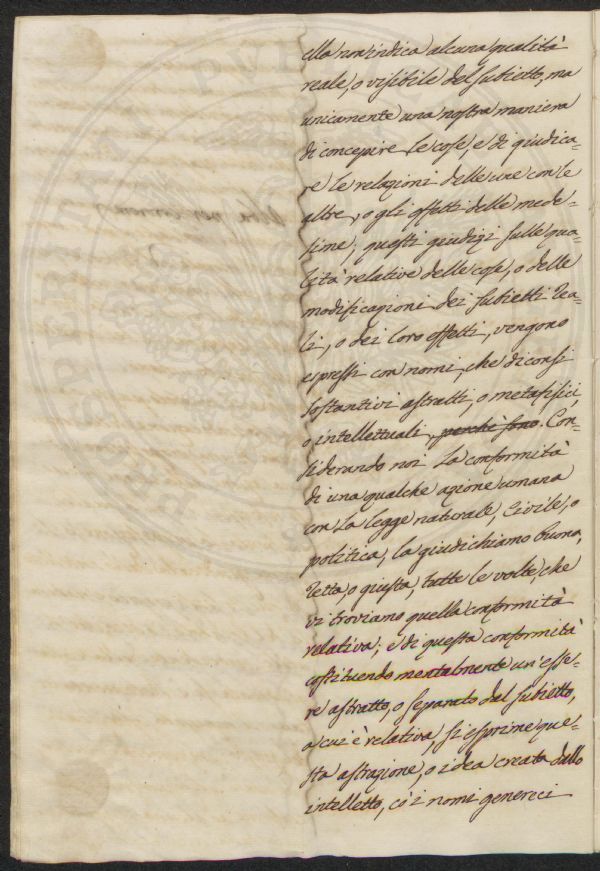 ella non indica alcuna qualità
reale, o visibile del subietto, ma
unicamente una nostra maniera
di concepire le cose, e di giudica-
re le relazioni delle une con le
altre, o gli effetti delle mede-
sime; questi giudizj sulle qua-
lità relative delle cose, o delle
modificazioni dei subietti rea-
li, o dei loro effetti, vengono
espressi con nomi, che diconsi
sostantivi astratti, o metafisici,
o intellettuali, perchè sono. Con-
siderando noi la conformità
di una qualche azione umana
con la legge naturale, civile, o
politica, la giudichiamo buona,
retta, o giusta, tutte le volte che
vi troviamo quella conformità
relativa; e di questa conformità
costituendo mentalmente un'esse-
re astratto, o separato dal subietto,
a cui è relativa, si esprime que-
sta astrazione, o idea creata dallo
intelletto, co' i nomi genereci